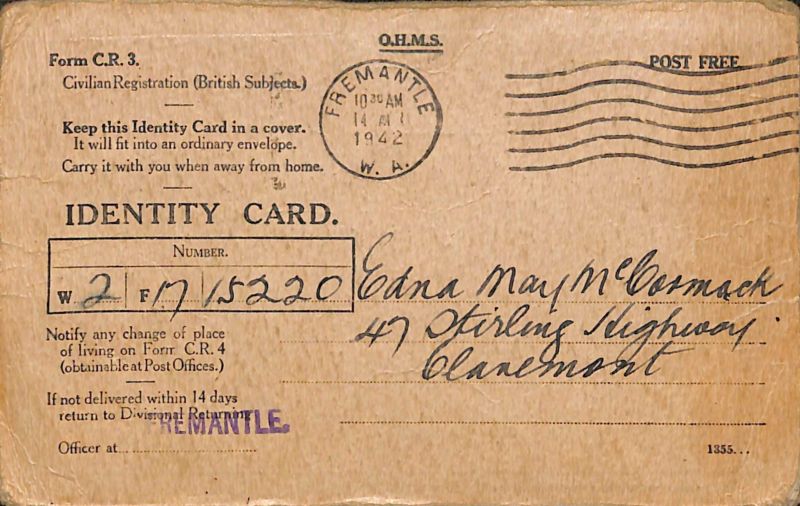 O.H.M.S.
Form C.R. 3.
POST FREE.
Civilian Registration (British Subjects.)
FREMANTLE
10 30 AM
14
1942
W. A.
Keep this Identity Card in a cover.
It will fit into an ordinary envelope.
Carry it with you when away from home.
IDENTITY CARD.
NUMBER.
W 2 F 17 15220
Edna May McCormack
47 Stirling Highway.
Claremont
Notify any change of place
of living on Form C.R. 4
(obtainable at Post Offices.)
If not delivered within 14 days
return to Divisional Returning
FREMANTLE.
Officer at
1355...